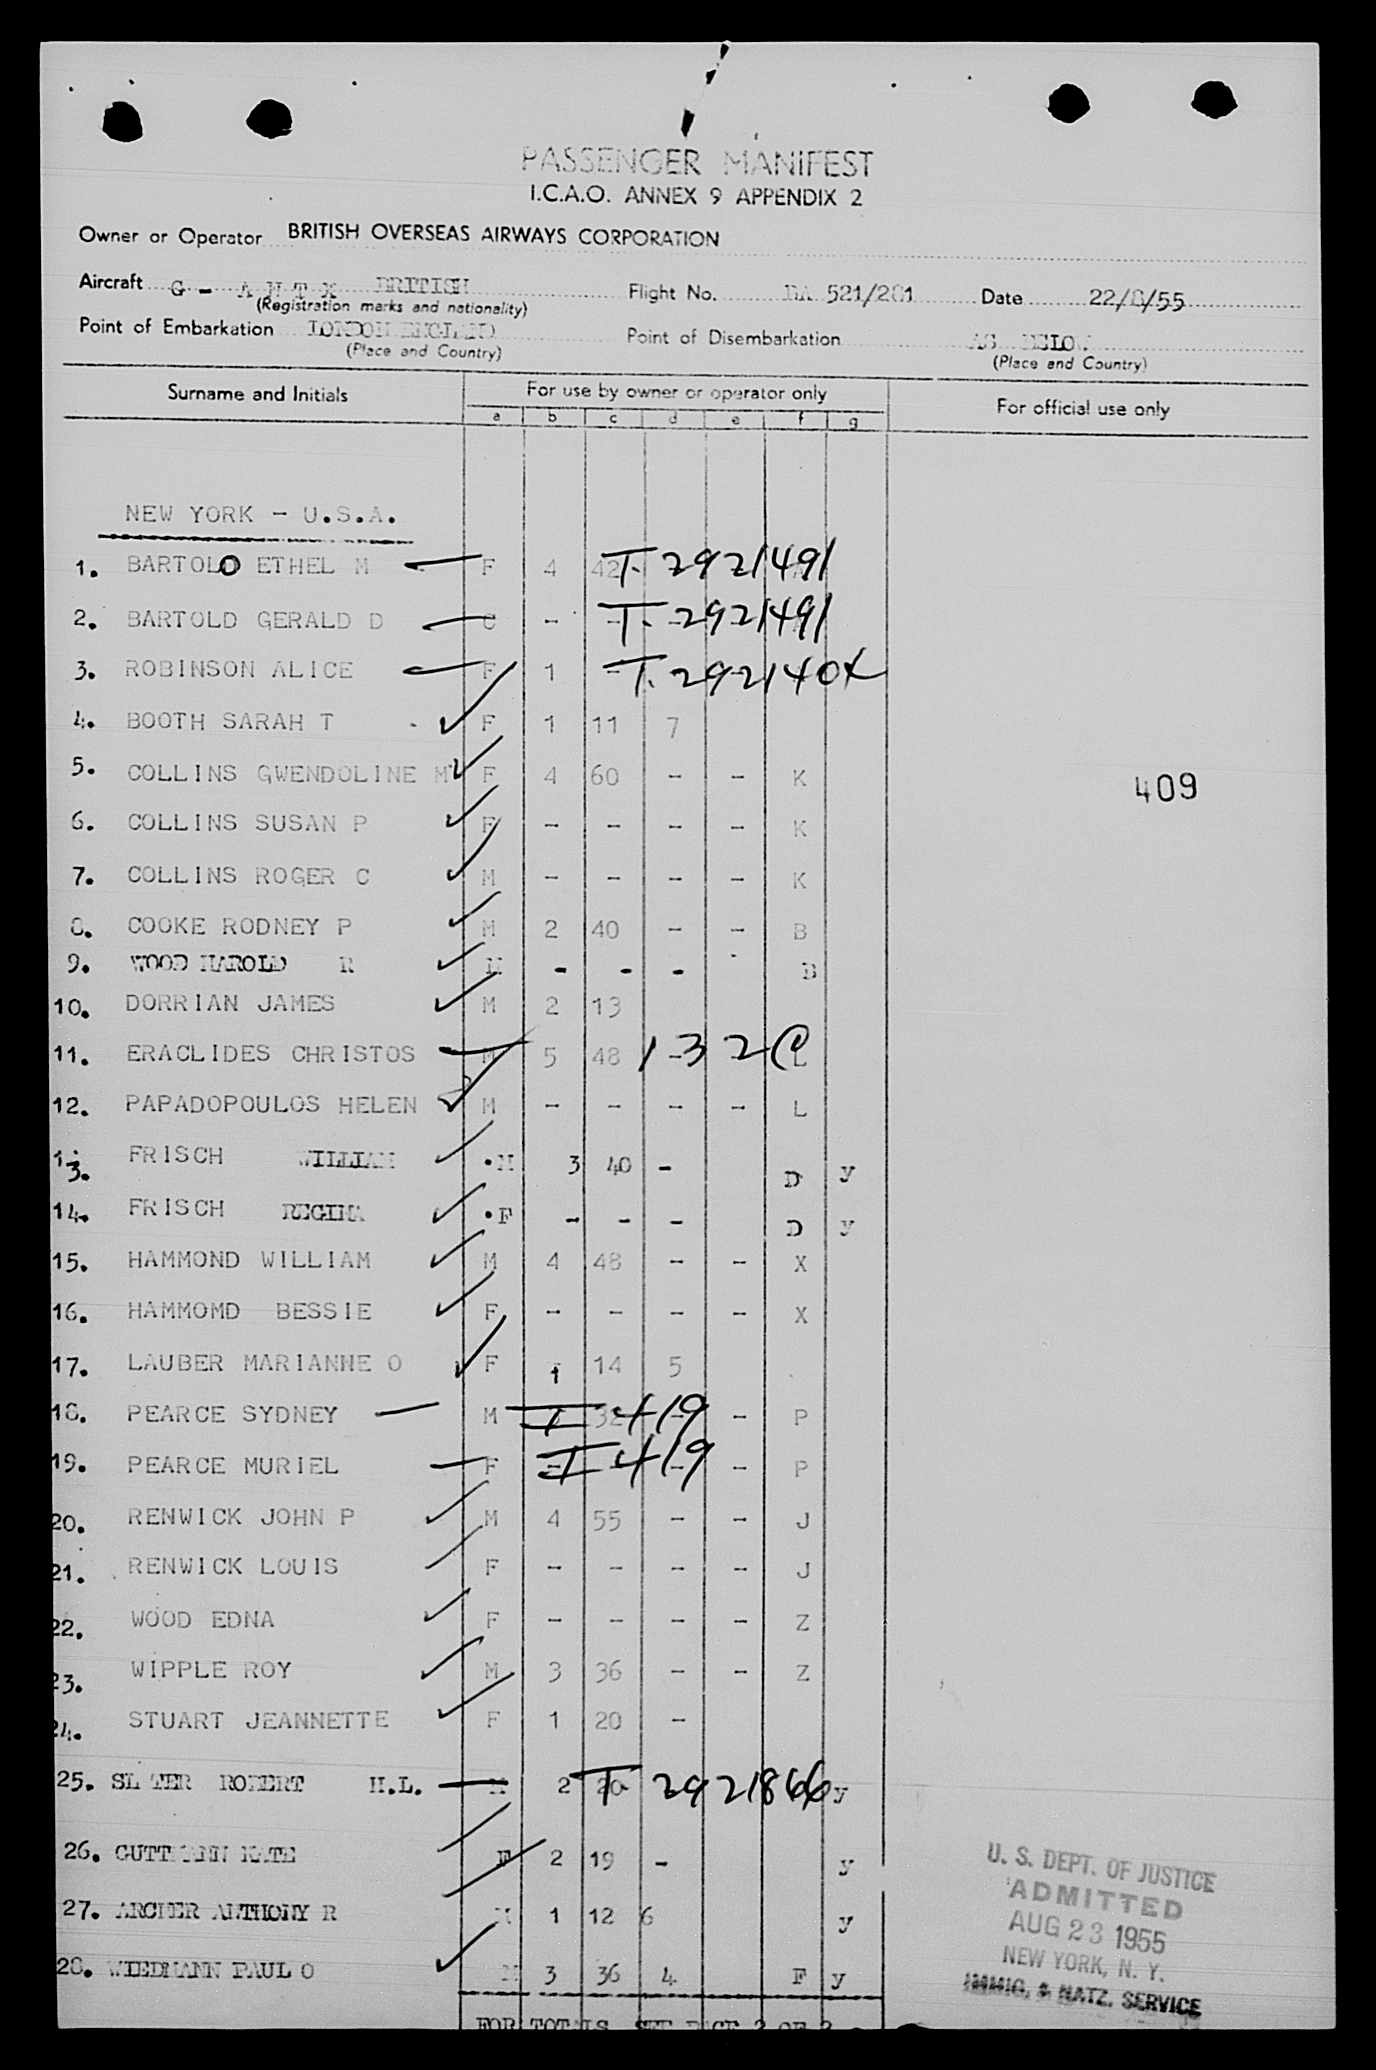 PASSENGER MANIFEST
I.C.A.O. ANNEX 9 APPENDIX 2
Owner or Operator BRITISH OVERSEAS AIRWAYS CORPORATION
Aircraft G - BRITISH Flight No. BA 521/281 Date 22/8/55
(Registration marks and nationality)
Point of Embarkation LONDON ENGLAND Point of Disembarkation AS BELOW
(Place and Country) (Place and Country)
Surname and Initials For use by owner or operator only For official use only
a b c d e f g
NEW YORK - U.S.A.
1. BARTOLO ETHEL M F 4 42 T-2921491
2. BARTOLD GERALD D C - T-2921491
3. ROBINSON ALICE F 1 - T-2921404
4. BOOTH SARAH T F 1 11 7
5. COLLINS GWENDOLINE M F 4 60 - - K
409
6. COLLINS SUSAN P F - - - - K
7. COLLINS ROGER C M - - - - K
8. COOKE RODNEY P M 2 40 - - B
9. WOOD HAROLD R M - - - - B
10. DORRIAN JAMES M 2 13
11. ERACLIDES CHRISTOS M 5 48 - 132
12. PAPADOPOULOS HELEN M - - - - L
13. FRISCH WILLIAM M 3 40 - D y
14. FRISCH REGINA F - - - D y
15. HAMMOND WILLIAM M 4 48 - - X
16. HAMMOMD BESSIE F - - - - X
17. LAUBER MARIANNE O F 1 14 5
18. PEARCE SYDNEY M 32 - - P I 419
19. PEARCE MURIEL F - - - - P I 419
20. RENWICK JOHN P M 4 55 - - J
21. RENWICK LOUIS F - - - - J
22. WOOD EDNA F - - - - Z
23. WIPPLE ROY M 3 36 - - Z
24. STUART JEANNETTE F 1 20 -
25. SLATER ROBERT H.L. M 2 20 T 2921866 y
26. GUTTMANN KATE F 2 19 - y
27. ARCHER ANTHONY R M 1 12 6 y
28. WIEDMANN PAUL O M 3 36 4 F y
FOR TOTALS SEE PAGE 2 OF 2
U. S. DEPT. OF JUSTICE
ADMITTED
AUG 23 1955
NEW YORK, N. Y.
IMMIG. & NATZ. SERVICE